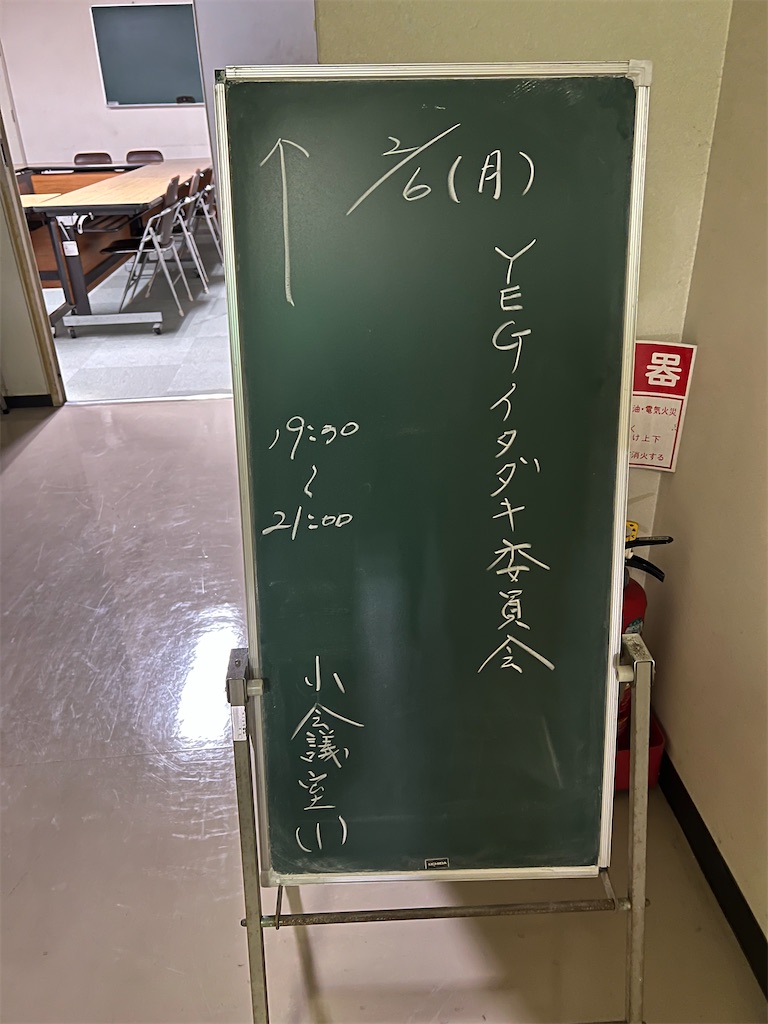 ↑
2/6(月)
YEGイタダキ委員会
19:30
〜
21:00
小会議室(1)
器
油・電気火災
く
け上下
消火する
UCHIDA